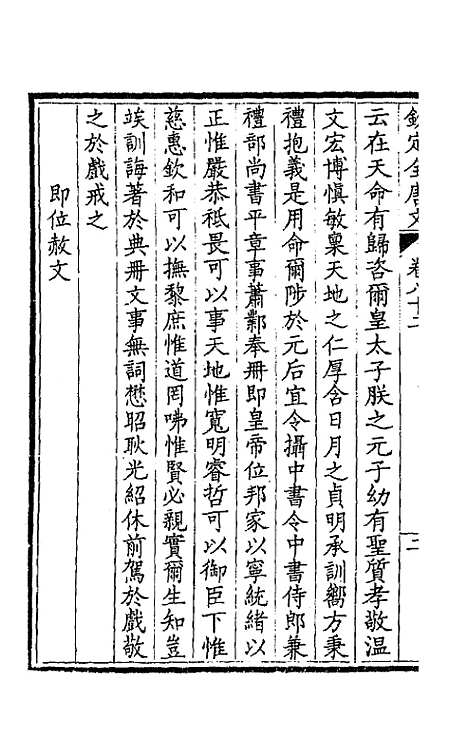 欽定全唐文 卷八十二 二
云在天命有歸咨爾皇太子朕之元子幼有聖質孝敬溫
文宏博慎敏稟天地之仁厚含日月之貞明承訓嚮方秉
禮抱義是用命爾陟於元后宜令攝中書令中書侍郎兼
禮部尚書平章事蕭鄴奉冊即皇帝位邦家以寧統緒以
正惟嚴恭祗畏可以事天地惟寬明睿哲可以御臣下惟
慈惠欽和可以撫黎庶惟道罔咈惟賢必親實爾生知豈
竢訓誨著於典冊文事無詞懋昭耿光紹休前駕於戲敬
之於戲戒之
即位赦文